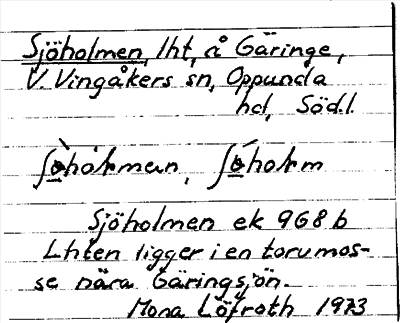 Sjöholmen, lht, å Gäringe,
V. Vingåkers sn, Oppunda
hd, Södl.
Sjöholmen ek 968 b
Lhten ligger i en torvmos-
se nära Gäringsjön.
Mona Löfroth 1973